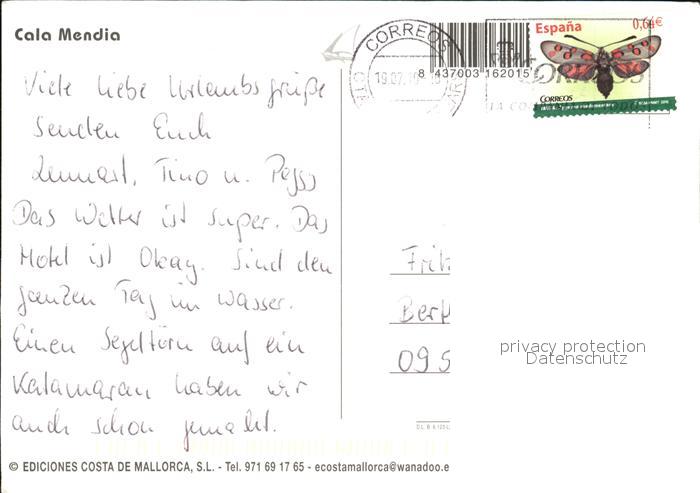 Cala Mendia
Viele liebe Urlaubsgrüße
senden Euch
Lennart, Tino u. Peggy
Das Wetter ist super. Das
Hotel ist Okay. Sind den
ganzen Tag im Wasser.
Einen Segeltörn auf ein
Katamaran haben wir
auch schon gemacht.
CORREOS
19.07.10
8 437003 162015
España
0,64€
CORREOS
Frit
Bert
09 5
privacy protection
Datenschutz
© EDICIONES COSTA DE MALLORCA, S.L. - Tel. 971 69 17 65 - ecostamallorca@wanadoo.e